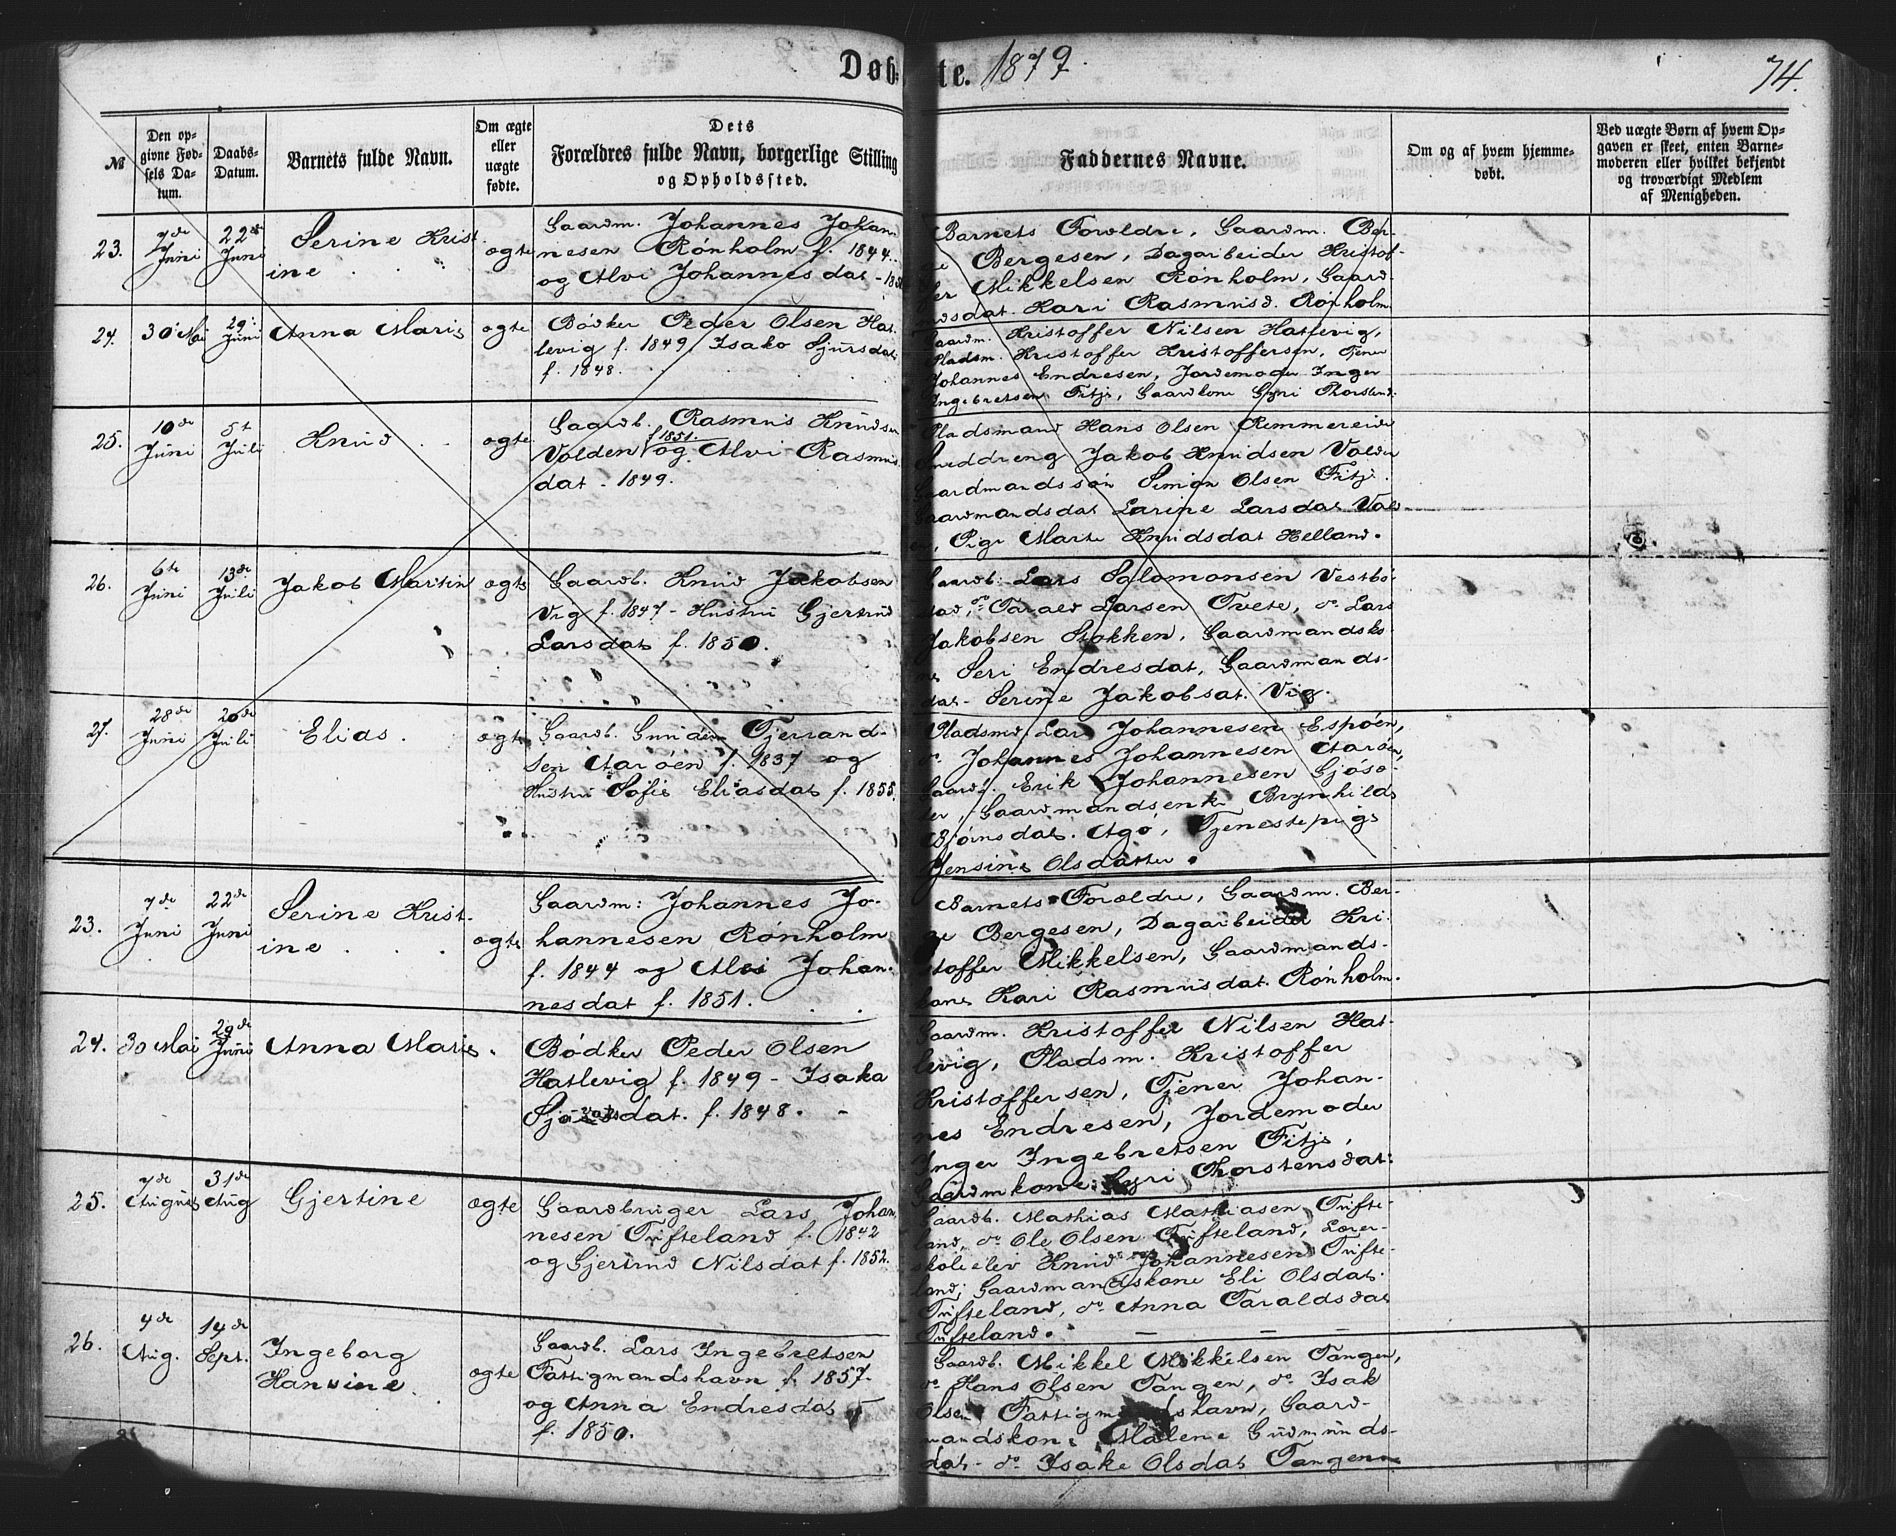 Døbte. 1879.
74.
№
Den opgivne Fødsels Datum.
Daabs-Datum.
Barnets fulde Navn.
Om ægte eller uægte fødte.
Dets Forældres fulde Navn, borgerlige Stilling og Opholdssted.
Faddernes Navne.
Om og af hvem hjemmedøbt.
Ved uægte Børn af hvem Opgaven er skeet, enten Barnemoderen eller hvilket bekjendt og troværdigt Medlem af Menigheden.
23.
7de Juni
22de Juni
Serine Krist
ine
ægte
Gaardm. Johannes Johan
nesen Rønholm f. 1844.
og Alvi Johannesdat
Barnets Forældre, Gaardm. Ber-
Bergesen, Dagarbeider Kristof-
fer Mikkelsen Rønholm, Gaard-
Kari Rasmusd. Rønholm
24.
30 Mai
29 Juni
Anna Marie
ægte
Bødker Peder Olsen Hat
levig f. 1849, Isaka Sjursdat
f. 1848.
Gaardm. Kristoffer Nilsen Hatlevig,
Pladsm. Kristoffer Kristoffersen, Tjener
Johannes Endresen, Jordemoder Inger
Ingebretsen Fitje, Gaardkone Gyri
25.
10de Juni
5t Juli
Knud
ægte
Gaardb. Rasmus Knudsen
f 1851.
Valden og Alvi Rasmus
dat - 1849.
Pladsmand Hans Olsen Remmereide
Jakob Knudsen Valden
Gaardmandssøn Simon Olsen Fitje.
Gaardmandsdat Larine Larsdat Val-
Pige Marte Knudsdat Helland.
26.
6te Juni
13de Juli
Jakob Martin
ægte
Gaardb. Knud Jakobsen
Vig f. 1847 - Hustru Gjertrud
Larsdat f. 1850.
Gaardb. Lars Salomonsen Vestbø-
stad, do Tarald Larsen Tvete, do Lars
Jakobsen Stokken, Gaardmandsko-
Seri Endresdat, Gaardmands-
dat - Serine Jakobsat. Vig.
27.
28de Juni
20de Juli
Elias.
ægte
Gaardb. Tjerrand-
sen Aarøen f. 1837 og
Hustru Sofie Eliasdat f. 1855.
Pladsmd Lars Johannesen Espøen,
do Johannes Johannesen Aarøen,
Gaardb. Erik Johannesen Gjøsø-
ter, Gaardmandsenke Brynhild
Bjørnsdat. Agø, Tjenestepige
Jensine Olsdatter.
23.
7de Juni
22de Juni
Serine Krist-
ine
ægte
Gaardm: Johannes Jo-
hannesen Rønholm
f. 1844 og Alvi Johan-
nesdat f. 1851.
Barnets Forældre, Gaardm. Ber-
ge Bergesen, Dagarbeider Kri-
stoffer Mikkelsen, Gaardmands-
kone Kari Rasmusdat. Rønholm.
24.
30 Mai
29de Juni
Anna Marie.
Bødker Peder Olsen
Hatlevig f. 1849 - Isaka
f. 1848.
Gaardm. Kristoffer Nilsen Hat-
levig, Pladsm. Kristoffer
Kristoffersen, Tjener Johan-
nes Endresen, Jordemoder
Inger Ingebretsen Fitje,
Gaardmkone Gyri Thorstensdat.
25.
7de August
31de Aug
Gjertine
ægte
Gaardbruger Lars Johan
nesen Tufteland f. 1842
og Gjertrud Nilsdat f. 1852.
Gaardb. Mathias Mathiasen Tufte-
land, do Ole Olsen Tufteland, Lærer-
skoleelev Knud Johannesen Tufte-
land, Gaardmandskone Eli Olsdat.
Tufteland, do Anna Taraldsdat
Tufteland.
26.
4de Aug.
14de Sept.
Ingeborg
Hansine.
ægte
Gaardb. Lars Ingebretsen
Fattigmandshavn f. 1857.
og Anna Endresdat
f. 1850.
Gaardb. Mikkel Mikkelsen Tangen,
do Hans Olsen Tangen, do Isak
Olsen Fattigmandshavn, Gaard-
mandskone Malene Gudmunds-
dat - do Isake Olsdat Tangen